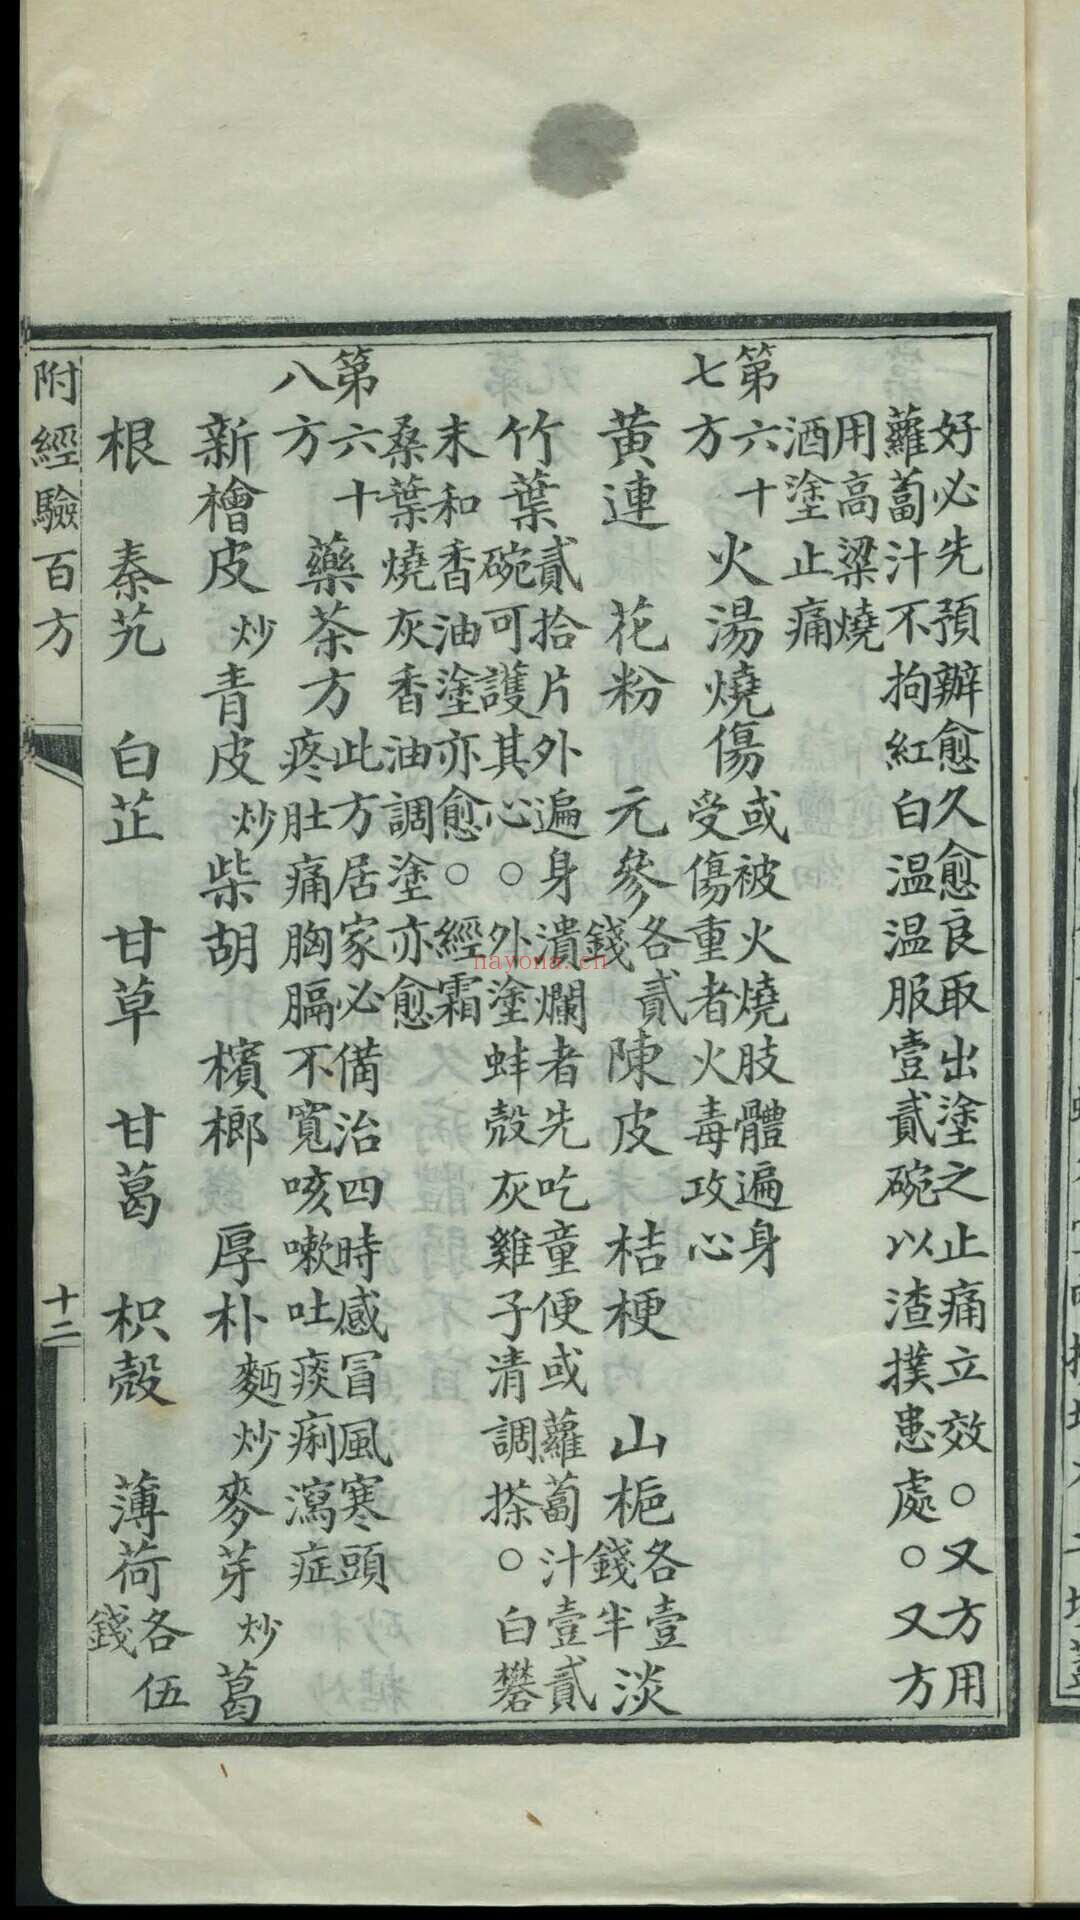 好必先預辦愈久愈良取出塗之止痛立效○又方用
蘿蔔汁不拘紅白温温服壹貳碗以渣撲患處○又方
用高粱燒
酒塗止痛
第六十七方 火湯燒傷 或被火燒肢體遍身
受傷重者火毒攻心
黄連 花粉 元參 各貳錢 陳皮 桔梗 山梔 各壹錢半 淡
竹葉 貳拾片外遍身潰爛者先吃童便或蘿蔔汁壹貳
碗可護其心○外塗蚌殼灰雞子清調搽○白礬
末和香油塗亦愈○經霜
桑葉燒灰香油調塗亦愈
第六十八方 藥茶方 此方居家必備治四時感冒風寒頭
疼肚痛胸膈不寬咳嗽吐痰痢瀉症
新檜皮 炒 青皮 炒 柴胡 檳榔 厚朴 麪炒 麥芽 炒 葛
根 秦艽 白芷 甘草 甘葛 枳殼 薄荷 各伍錢
附經驗百方
十二
nayona.cn